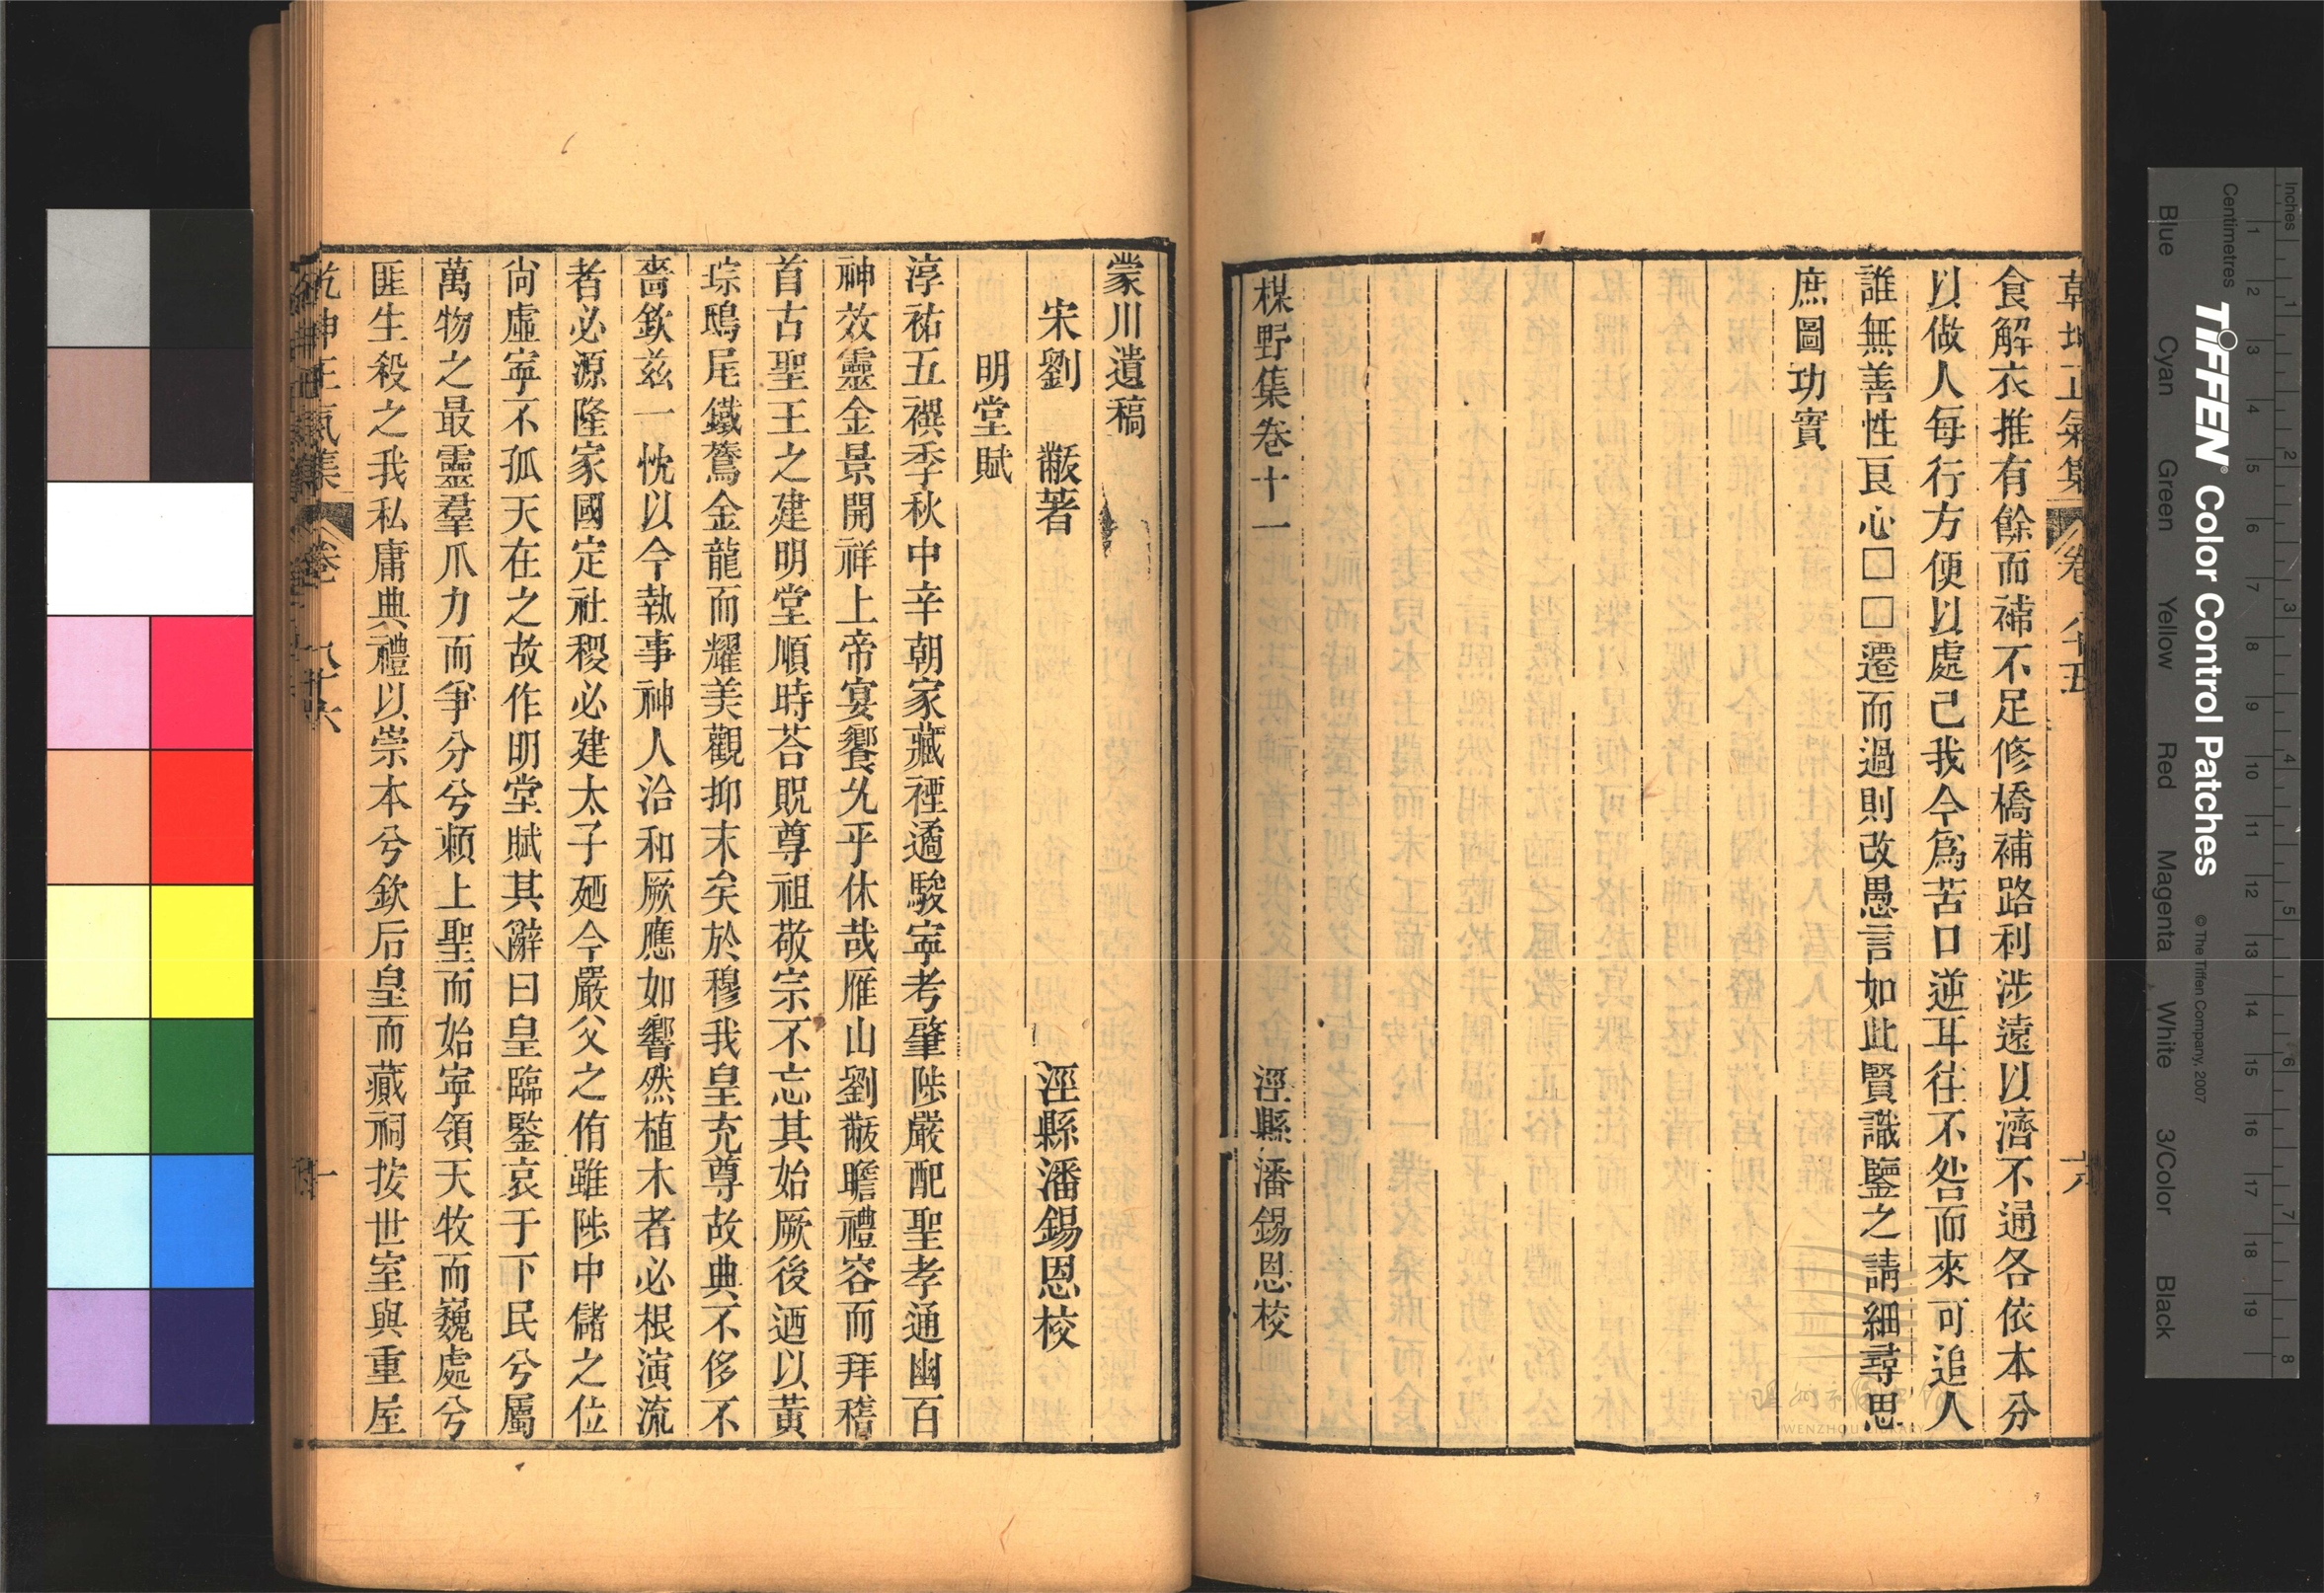 乾坤正氣集 卷八十五 六
食解衣推有餘而補不足修橋補路利涉遠以濟不通各依本分
以做人每行方便以處己我今爲苦口逆耳往不咎而來可追人
誰無善性良心□□遷而過則改愚言如此賢識鑒之請細尋思
庶圖功實
楳野集卷十一 涇縣潘錫恩校
蒙川遺稿
宋劉 黻著 涇縣潘錫恩校
明堂賦
淳祐五禩季秋中辛朝家藏禋遹駿寧考肇陟嚴配聖孝通幽百
神效靈金景開祥上帝宴饗允乎休哉雁山劉黻瞻禮容而拜稽
首古聖王之建明堂順時荅貺尊祖敬宗不忘其始厥後迺以黃
琮鴟尾鐵鶩金龍而耀美觀抑末矣於穆我皇充尊故典不侈不
嗇欽兹一忱以今執事神人洽和厥應如響然植木者必根演流
者必源隆家國定社稷必建太子廼今嚴父之侑雖陟中儲之位
尙虛寧不孤天在之故作明堂賦其辭曰皇臨鑒哀于下民兮屬
萬物之最靈羣爪力而爭分兮賴上聖而始寧領天牧而巍處兮
匪生殺之我私庸典禮以崇本兮欽后皇而藏祠按世室與重屋
乾坤正氣集 卷 八十六 一
TIFFEN® Color Control Patches
© The Tiffen Company, 2007
Inches
Centimetres
1 2 3 4 5 6 7 8
1 2 3 4 5 6 7 8 9 10 11 12 13 14 15 16 17 18 19
Blue Cyan Green Yellow Red Magenta White 3/Color Black
WENZHOU LIBRARY